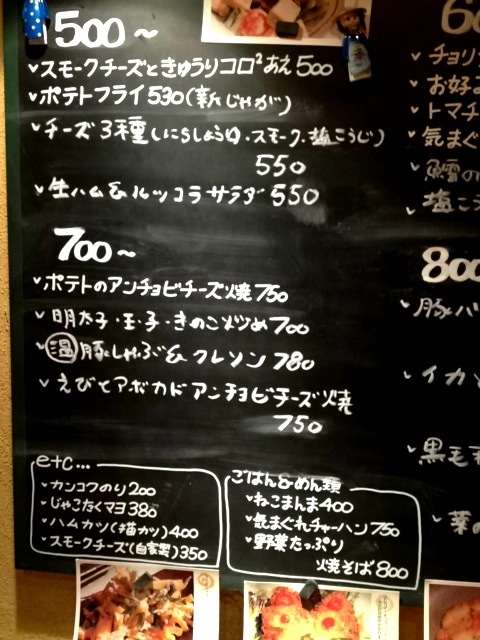 500～
スモークチーズときゅうりコロ²あえ500
ポテトフライ530(新じゃが)
チーズ3種(にらしょうゆ・スモーク・塩こうじ)
550
生ハム&ルッコラサラダ550
700～
ポテトのアンチョビチーズ焼750
明太子・玉子・きのこメツめ700
温 豚しゃぶ&クレソン780
えびとアボカドアンチョビチーズ焼
750
etc...
カンコクのり200
じゃこたくマヨ380
ハムカツ(猫カツ)400
スモークチーズ(自家製)350
ごはん&めん類
ねこまんま400
気まぐれチャーハン750
野菜たっぷり
焼そば800
チョリ
お好
トマチ
気まぐ
塩こ
800
豚バ
イカ
黒毛
菜の